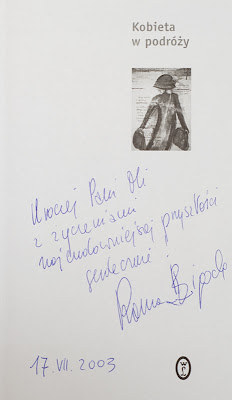 Kobieta
w podróży
Uroczej Pani Oli
z życzeniami
najcudowniejszej przyszłości
serdecznie
Roma Ligocka
17.VII.2003